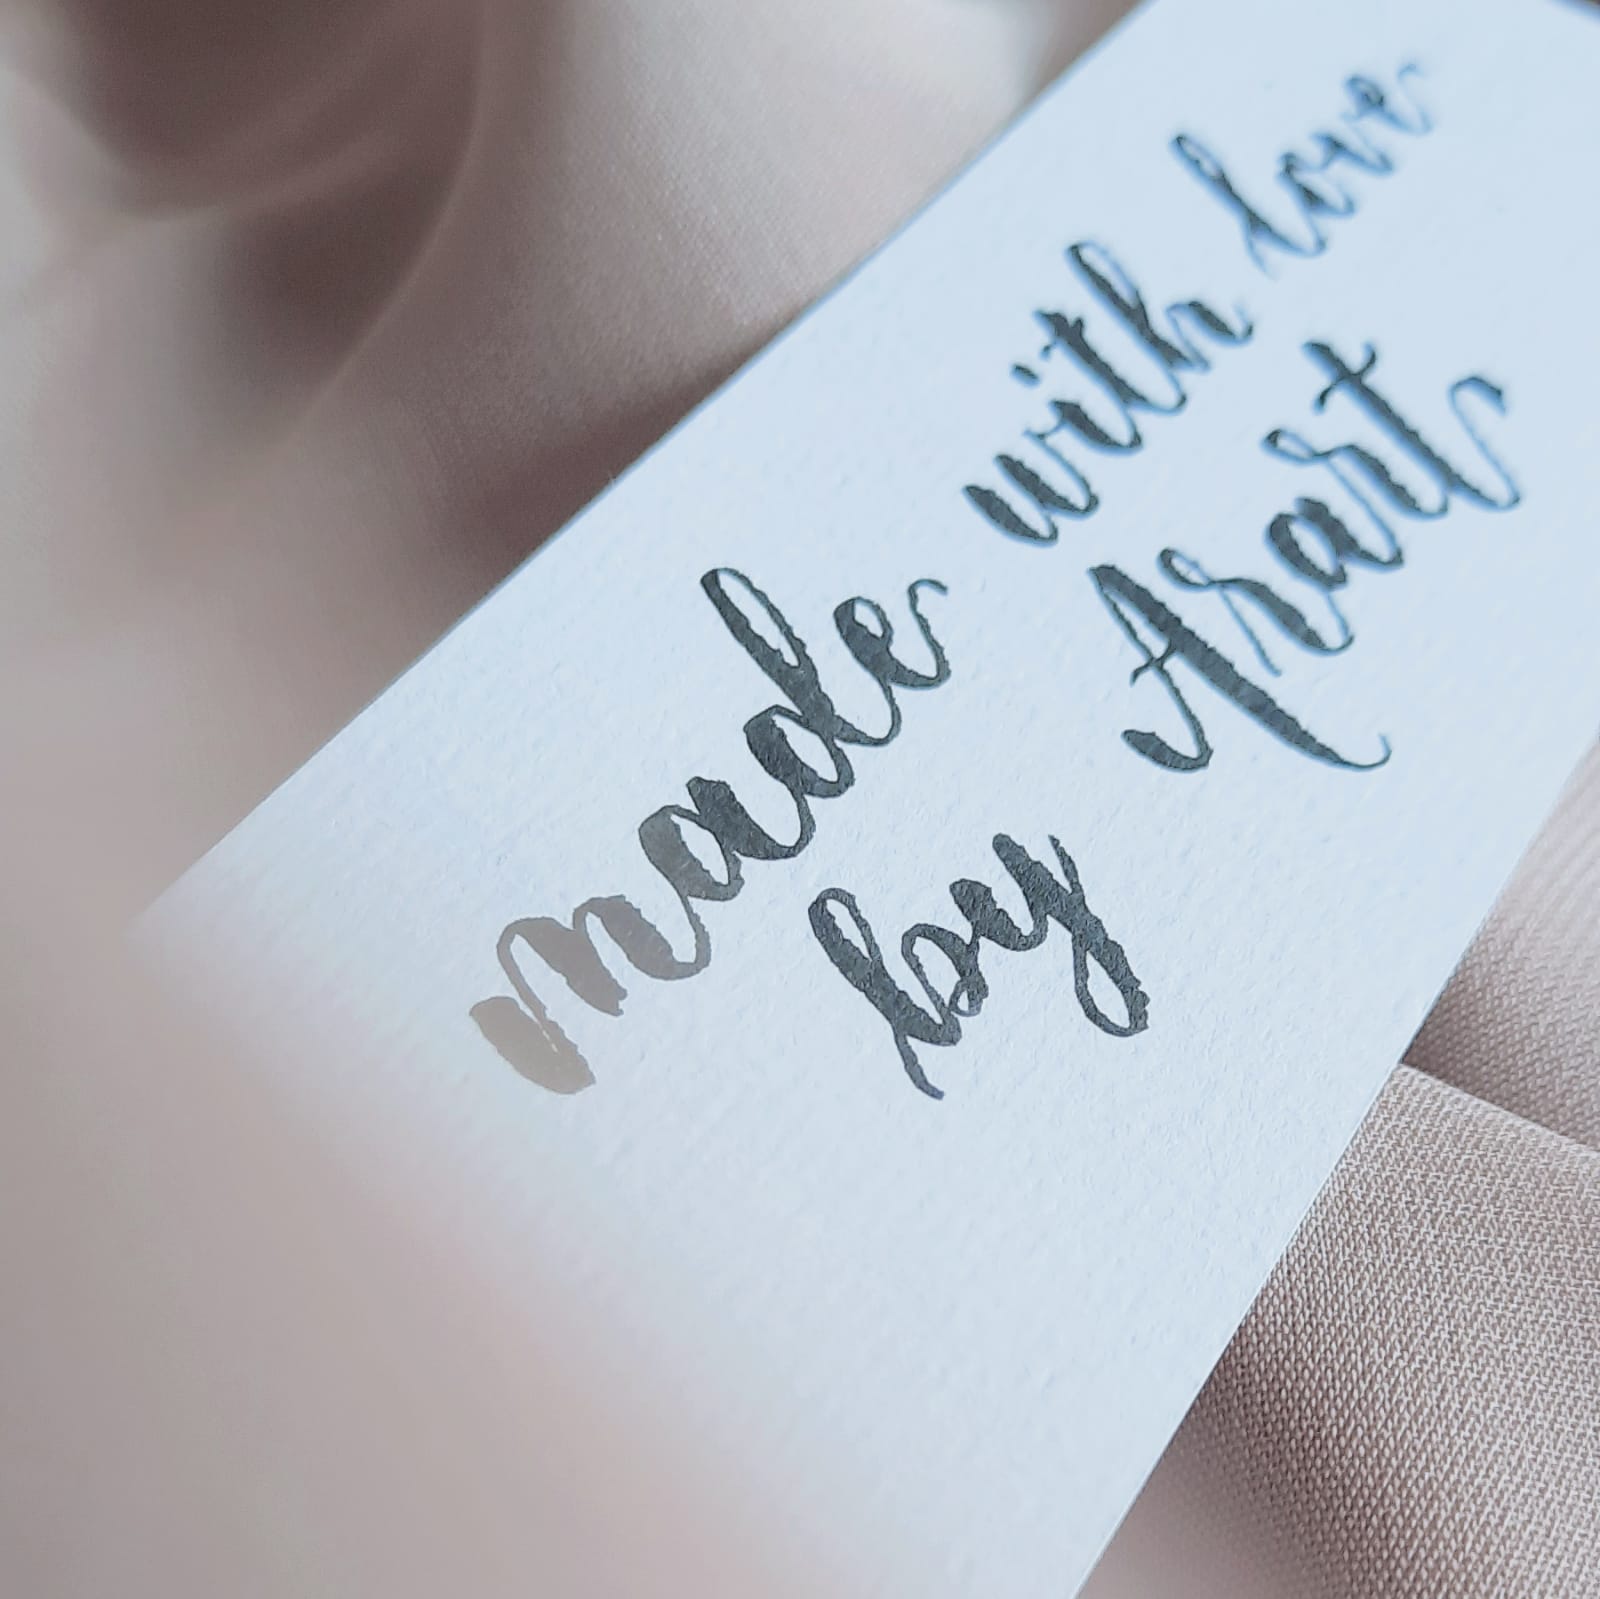 made with love
by Arart